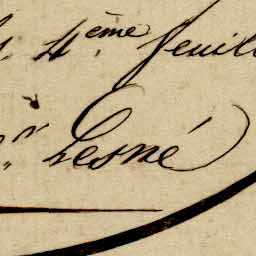 4.ème feuill
Lesné